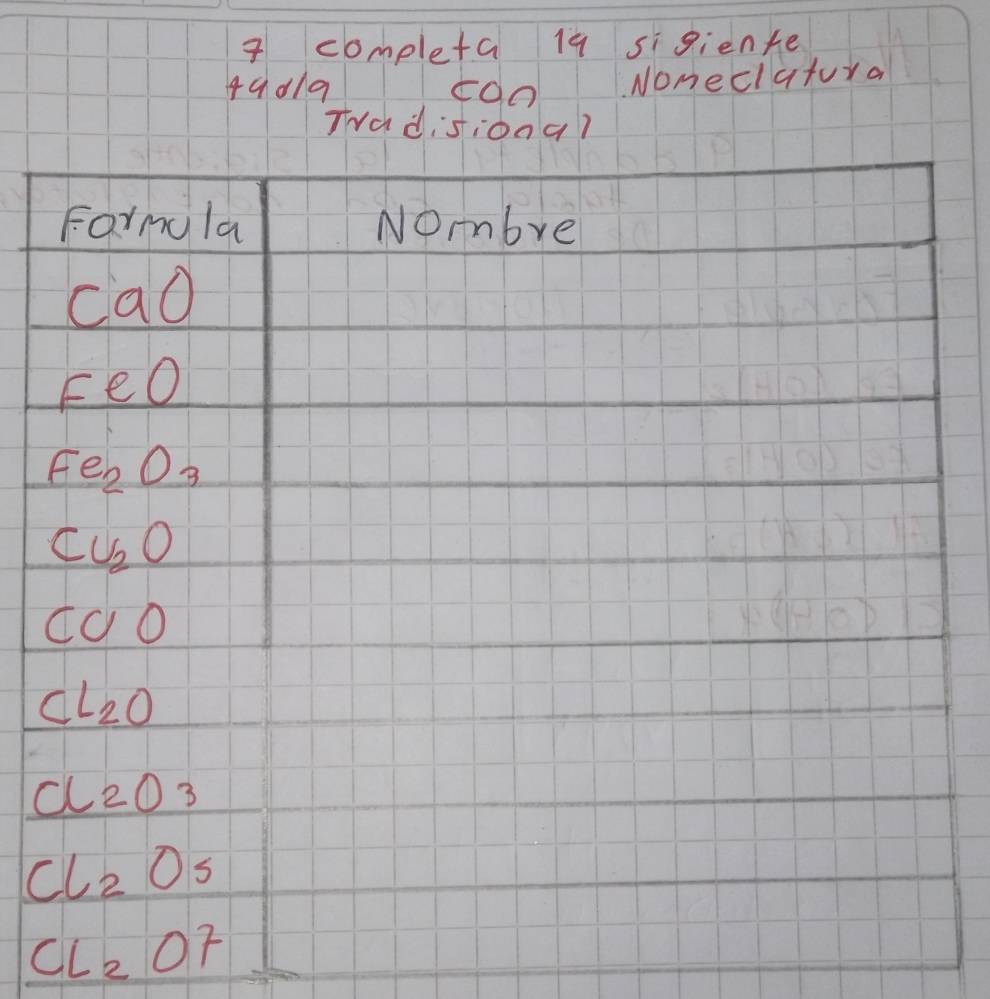 7 completa la sigiente
tadla con Nomeclatura
Tradisional
Formula Nombre
CaO
FeO
Fe₂O₃
Cu₂O
CuO
CL₂O
CL2O3
CL₂O5
CL₂O7